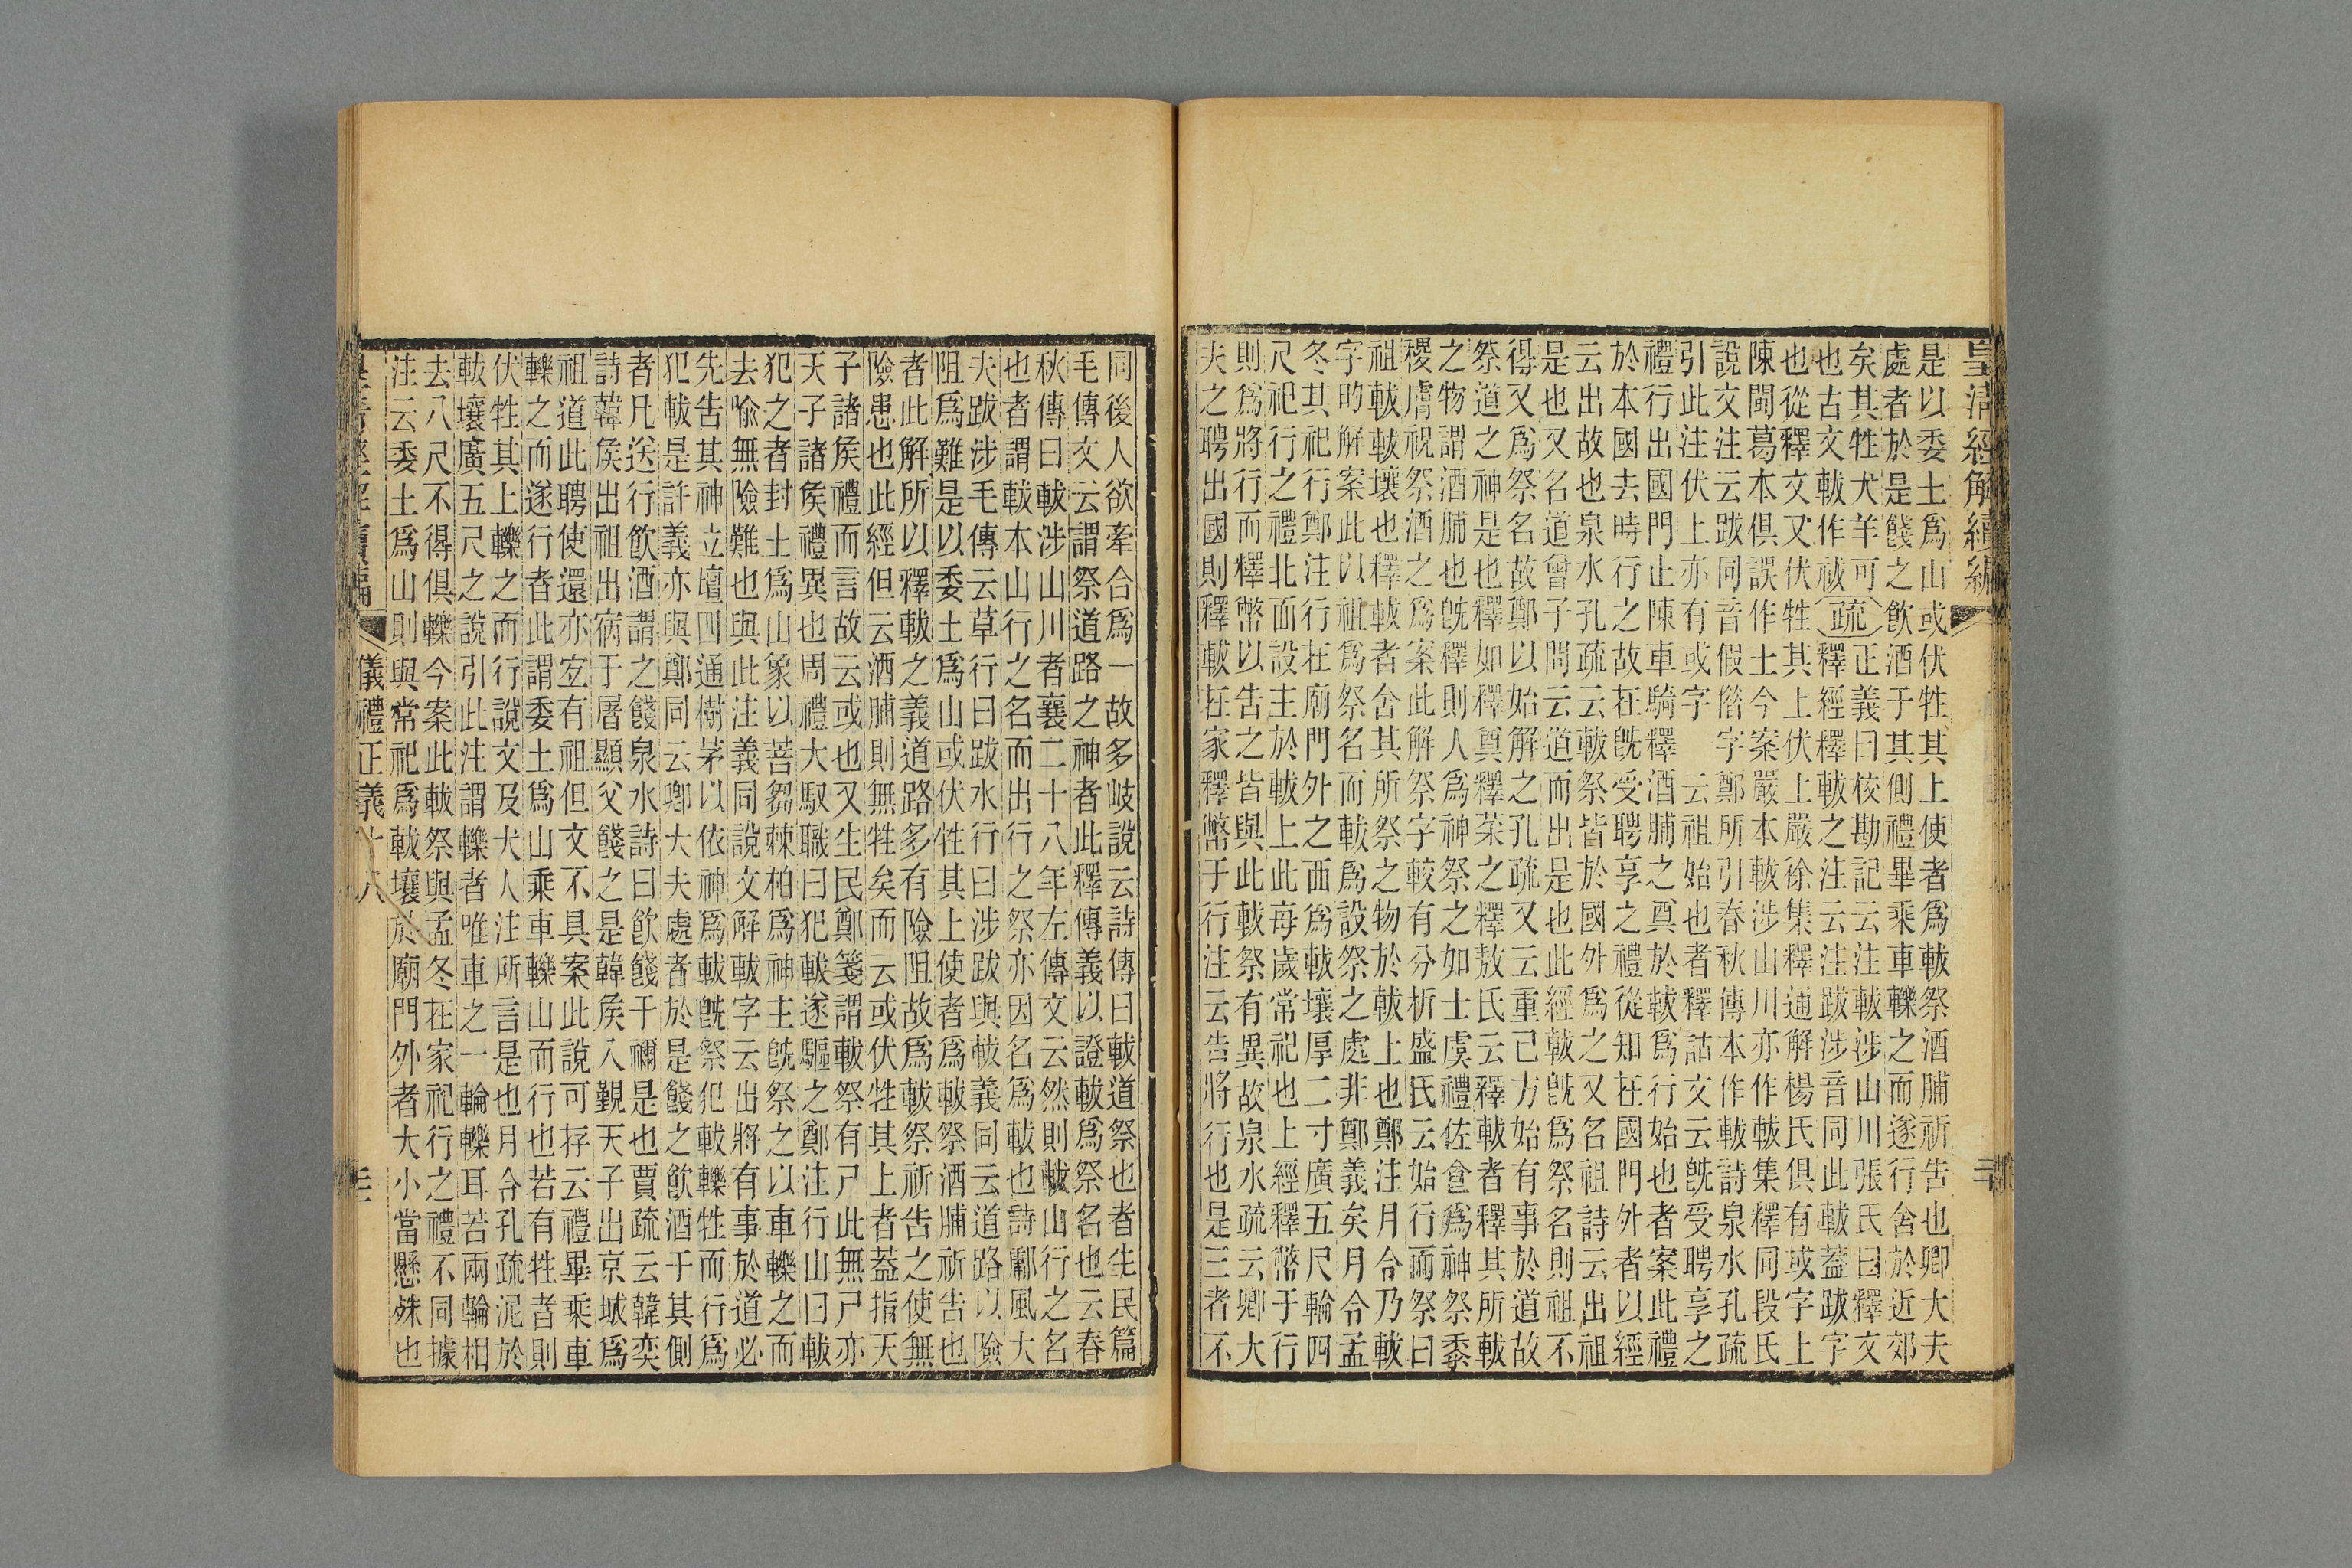 皇清經解續編
是以委土爲山或伏牲其上使者爲軷祭酒脯祈告也卿大夫
處者於是餞之飲酒于其側禮畢乘車轢之而遂行舍於近郊
矣其牲犬羊可疏正義曰校勘記云注軷涉山川張氏曰釋文
也古文軷作祓釋經釋軷之注云注跋涉音同此軷蓋跋字
也從釋文又伏牲其上伏上嚴徐集釋通解楊氏俱有或字上
陳閩葛本俱誤作土今案嚴本軷涉山川亦作軷集釋同段氏
說文注云跋同音假偺字鄭所引春秋傳本作軷詩泉水孔疏
引此注伏上亦有或字 云祖始也者釋詁文云旣受聘享之
禮行出國門止陳車騎釋酒脯之奠於軷爲行始也者案此禮
於本國去時行之故在旣受聘享之禮從知在國門外者以經
云出故也泉水孔疏云軷祭皆於國外爲之又名祖詩云出祖
是也又名道曾子問云道而出是也此經軷旣爲祭名則祖不
得又爲祭名故鄭以始解之孔疏又云重己方始有事於道故
祭道之神是也釋如釋奠釋菜之釋敖氏云釋軷者釋其所軷
之物謂酒脯也旣釋則人爲神祭之如士虞禮佐食爲神祭黍
稷膚祝祭酒之爲案此解祭字較有分析盛氏云始行而祭曰
祖軷軷壤也釋軷者舍其所祭之物於軷上也鄭注月令乃軷
字的解案此以祖爲祭名而軷爲設祭之處非鄭義矣月令孟
冬其祀行鄭注行在廟門外之西爲軷壤厚二寸廣五尺輪四
尺祀行之禮北面設主於軷上此每歲常祀也上經釋幣于行
則爲將行而釋幣以告之皆與此軷祭有異故泉水疏云卿大
夫之聘出國則釋軷在家釋幣于行注云告將行也是三者不
同後人欲牽合爲一故多岐說云詩傳曰軷道祭也者生民篇
毛傳文云謂祭道路之神者此釋傳義以證軷爲祭名也云春
秋傳曰軷涉山川者襄二十八年左傳文云然則軷山行之名
也者謂軷本山行之名而出行之祭亦因名爲軷也詩鄘風大
夫跋涉毛傳云草行曰跋水行曰涉跋與軷義同云道路以險
阻爲難是以委土爲山或伏牲其上使者爲軷祭酒脯祈告也
者此解所以釋軷之義道路多有險阻故爲軷祭祈告之使無
險患也此經但云酒脯則無牲矣而云或伏牲其上者蓋指天
子諸侯禮而言故云或也又生民鄭箋謂軷祭有尸此無尸亦
天子諸侯禮異也周禮大馭職曰犯軷遂驅之鄭注行山曰軷
犯之者封土爲山象以菩芻棘柏爲神主旣祭之以車轢之而
去喻無險難也與此注義同說文解軷字云出將有事於道必
先告其神立壇四通樹茅以依神爲軷旣祭犯軷轢牲而行爲
犯軷是許義亦與鄭同云卿大夫處者於是餞之飲酒于其側
者凡送行飲酒謂之餞泉水詩曰飲餞于禰是也賈疏云韓奕
詩韓侯出祖出宿于屠顯父餞之是韓侯入覲天子出京城爲
祖道此聘使還亦宜有祖但文不具案此說可存云禮畢乘車
轢之而遂行者此謂委土爲山乘車轢山而行也若有牲者則
伏牲其上轢之而行說文及犬人注所言是也月令孔疏泥於
軷壤廣五尺之說引此注謂轢者唯車之一輪轢耳若兩輪相
去八尺不得俱轢今案此軷祭與孟冬在家祀行之禮不同據
注云委土爲山則與常祀爲軷壤於廟門外者大小當懸殊也
儀禮正義十八